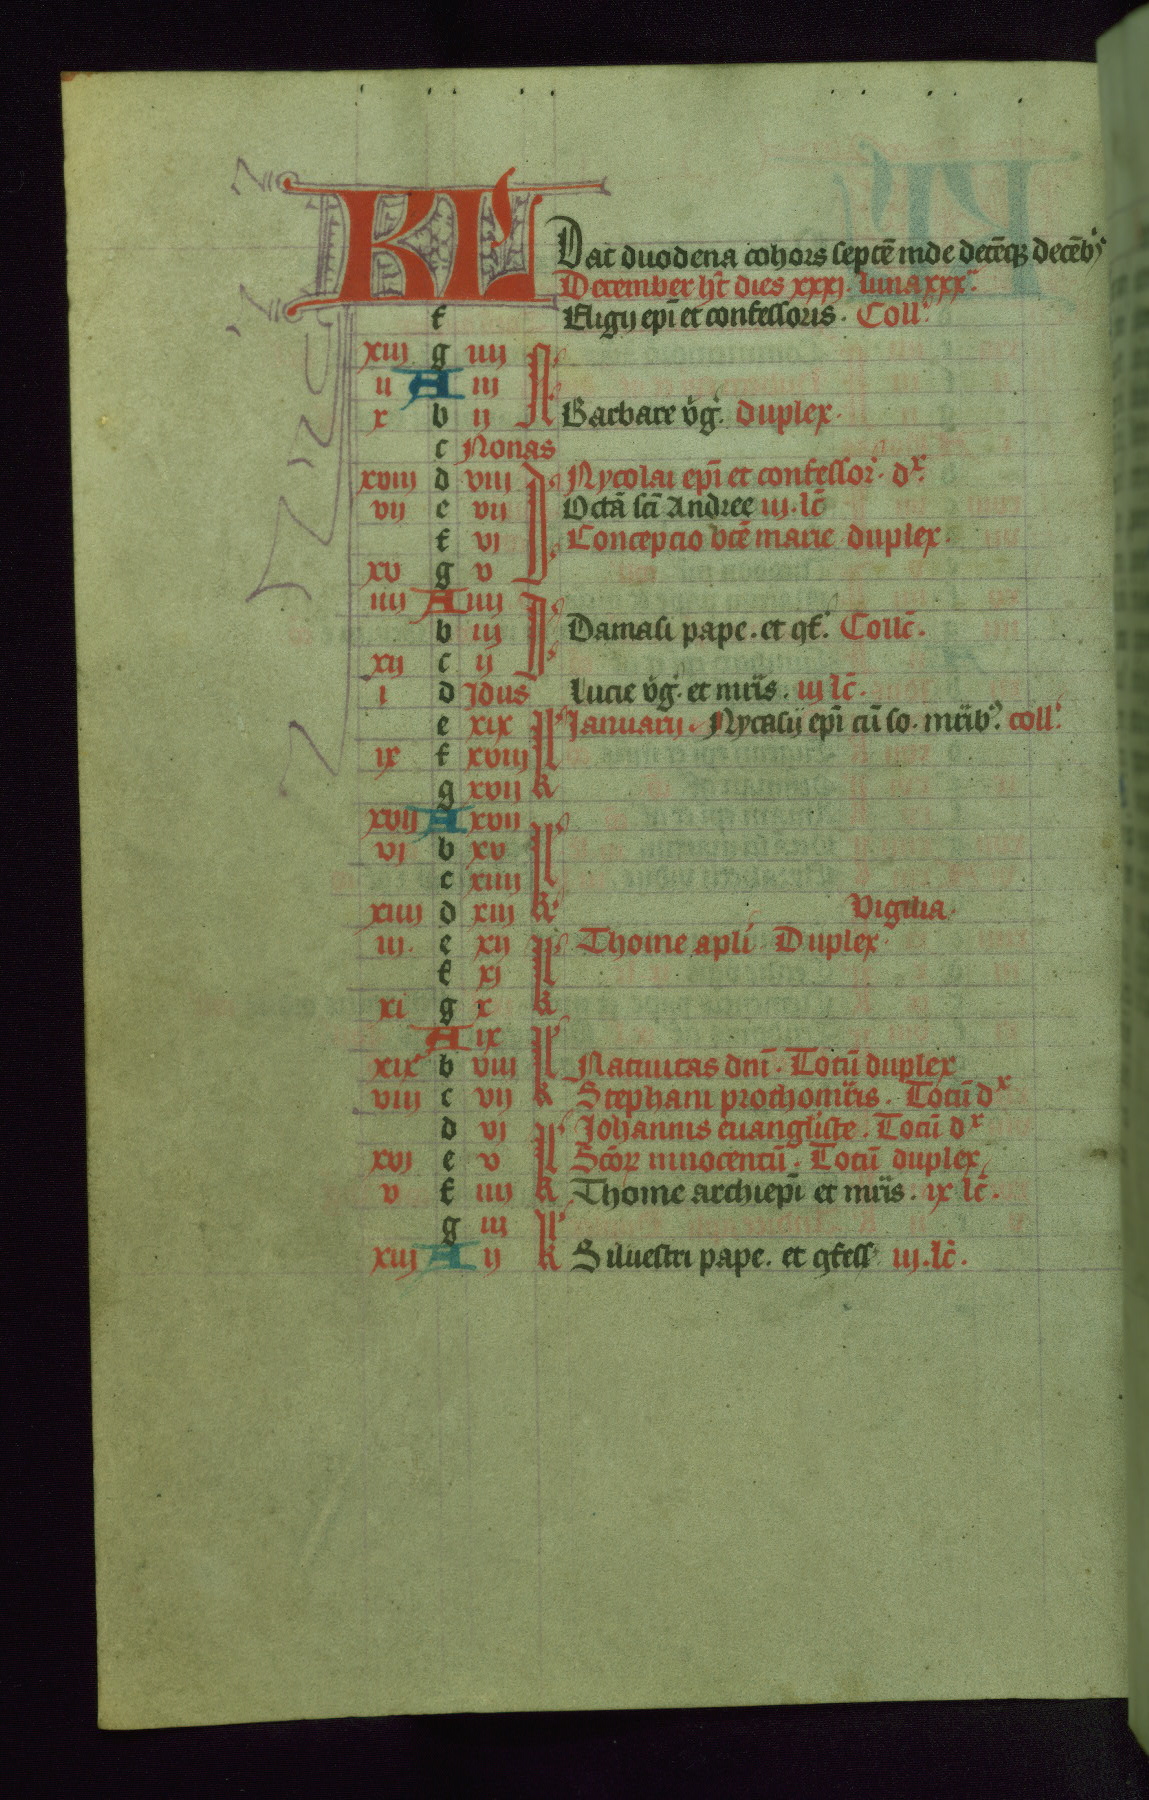 KL Dat duodena cohors septē inde decēq; decēb⁹
December hꝫ dies xxxj. luna xxx.
f Eligij ep̄i et confessoris. Coll.
xiij g iiij N
ij A iij
x b ij Barbare v̄g. duplex.
c Nonas
xviij d viij Nycolai ep̄i et confessor. dx.
vij e vij Octā sc̄i Andree iij. lc̄
f vj Concepcio btē marie duplex.
xv g v
iiij A iiij
b iij Damasi pape. et ꝯf. Collc̄.
xij c ij
i d Jdus Lucie v̄g. et mr̄is. iij lc̄.
e xix Januarij. Nycasij ep̄i cū so. mr̄ib⁹. coll.
ix f xviij
g xvij K
xvij A xvij
vj b xv
c xiiij
xiiij d xiij K Vigilia.
iij. e xij Thome apl̄i Duplex.
f xj
xi g x K
A ix
xix b viij Natiuitas dn̄i. Totū duplex
viij c vij K Stephani prothomr̄is. Totū dx
d vj Johannis euangliste. Totū dx
xvj e v Scōꝝ innocentū. Totū duplex
v f iiij K Thome archiep̄i et mr̄is. ix lc̄.
g iij
xiij A ij K Siluestri pape. et ꝯfess iij. lc̄.